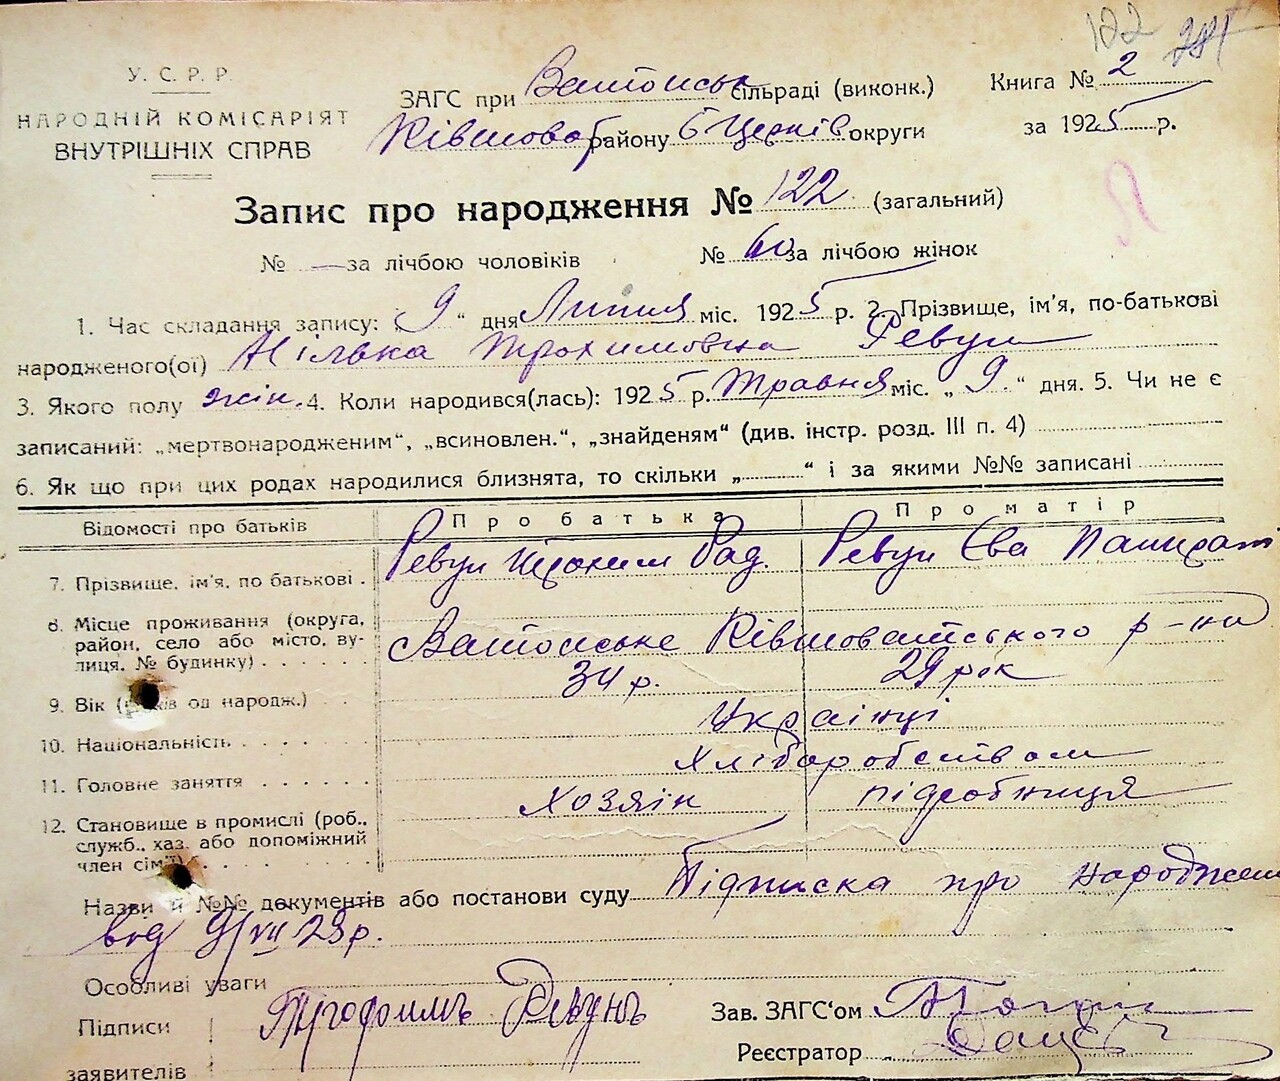 122 281
У. С. Р. Р.
НАРОДНІЙ КОМІСАРІЯТ
ВНУТРІШНІХ СПРАВ
ЗАГС при сільраді (виконк.) Книга № 2
району Б Церків округи за 1925 р.
Запис про народження № 122 (загальний)
№ — за лічбою чоловіків № 60 за лічбою жінок
1. Час складання запису: „9“ дня Липня міс. 1925 р. 2. Прізвище, ім'я, по-батькові
народженого(ої) Нілька Трохимовна Ревун
3. Якого полу жін. 4. Коли народився(лась): 1925 р. Травня міс. „9“ дня. 5. Чи не є
записаний: „мертвонародженим“, „всиновлен.“, „знайденям“ (див. інстр. розд. III п. 4)
6. Як що при цих родах народилися близнята, то скільки „ “ і за якими №№ записані
Відомості про батьків Про батька Про матір
7. Прізвище, ім'я, по батькові . Ревун Трохим Рад. Ревун Єва
8. Місце проживання (округа,
район, село або місто, ву-
лиця, № будинку) . . . . . . Ківшоватського р-ну
9. Вік (років од народж.) . . . 34 р. 29 рок
10. Національність . . . . . . . Українці
11. Головне заняття . . . . . . . Хліборобством
12. Становище в промислі (роб.,
служб., хаз. або допоміжний
член сім'ї) . . . . . . . . . Хозяїн підробниця
Назви й №№ документів або постанови суду Підписка про народжен
від 9/VII 29 р.
Особливі уваги
Підписи Трофимъ Ревунъ Зав. ЗАГС‘ом
заявителів Реєстратор